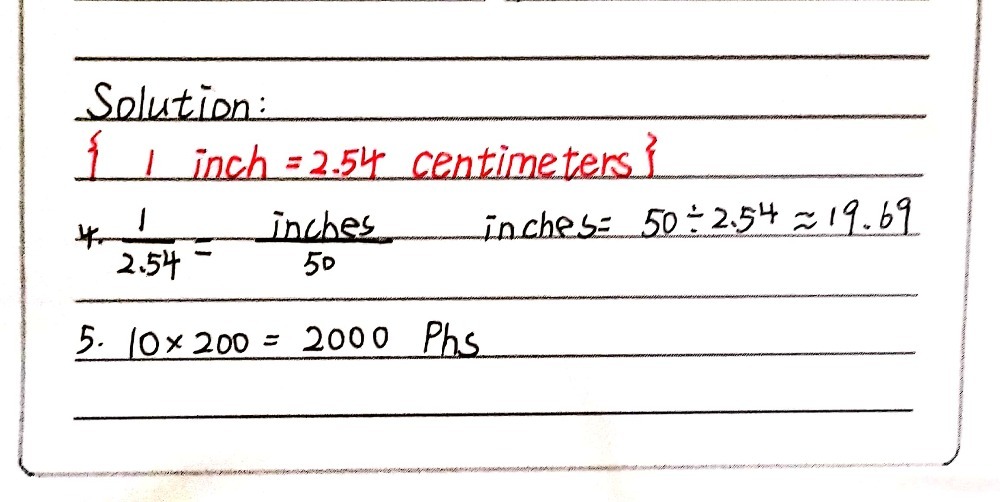 Solution:
{ 1 inch = 2.54 centimeters }
4. 1/2.54 = inches/50 inches = 50 ÷ 2.54 ≈ 19.69
5. 10 × 200 = 2000 Phs